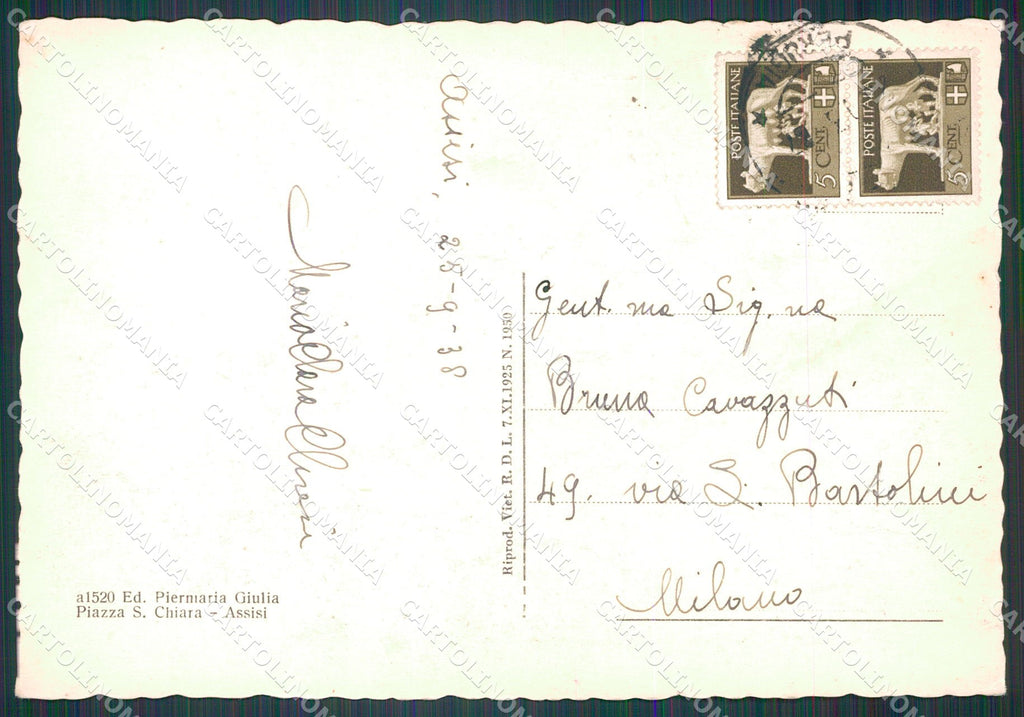 Assisi, 25-9-38
Maria Clara
POSTE ITALIANE
5 CENT.
POSTE ITALIANE
5 CENT.
PERUGIA
Gent.ma Sig.na
Bruna Cavazzuti
49. via S. Bartolini
Milano
Riprod. Viet. R. D. L. 7.XI.1925 N. 1950
a1520 Ed. Piermaria Giulia
Piazza S. Chiara - Assisi
CARTOLINOMANIA